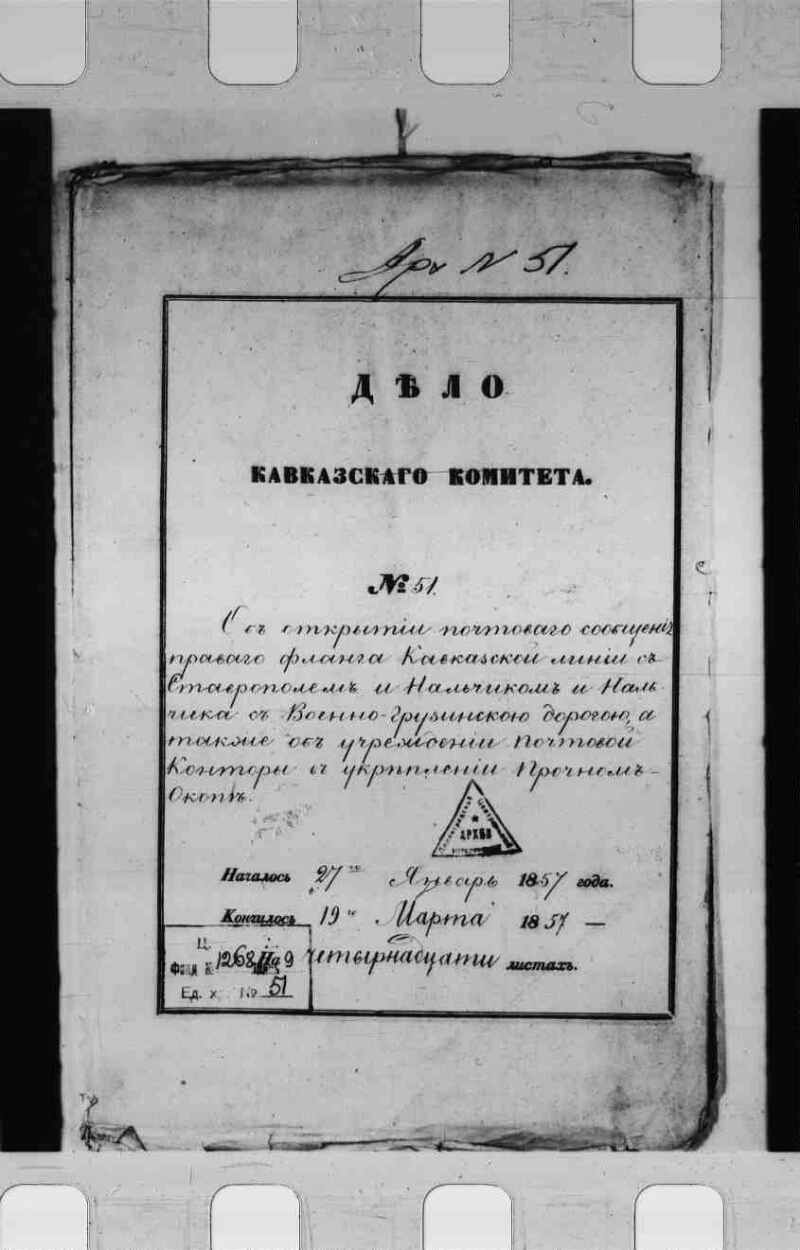 Арх № 51.
ДѢЛО
КАВКАЗСКАГО КОМИТЕТА.
№ 51.
Объ открытіи почтоваго сообщенія
праваго фланга Кавказской линіи съ
Ставрополемъ и Нальчикомъ и Наль-
чика съ Военно-Грузинскою дорогою, а
также объ учрежденіи Почтовой
Конторы въ укрѣпленіи Прочномъ-
Окопѣ.
АРХИВ
Началось 27 Январь 1857 года.
Кончилось 19 Марта 1857 —
четырнадцати листахъ.
Ц.
Фонд № 1268 9
Ед. х. № 51